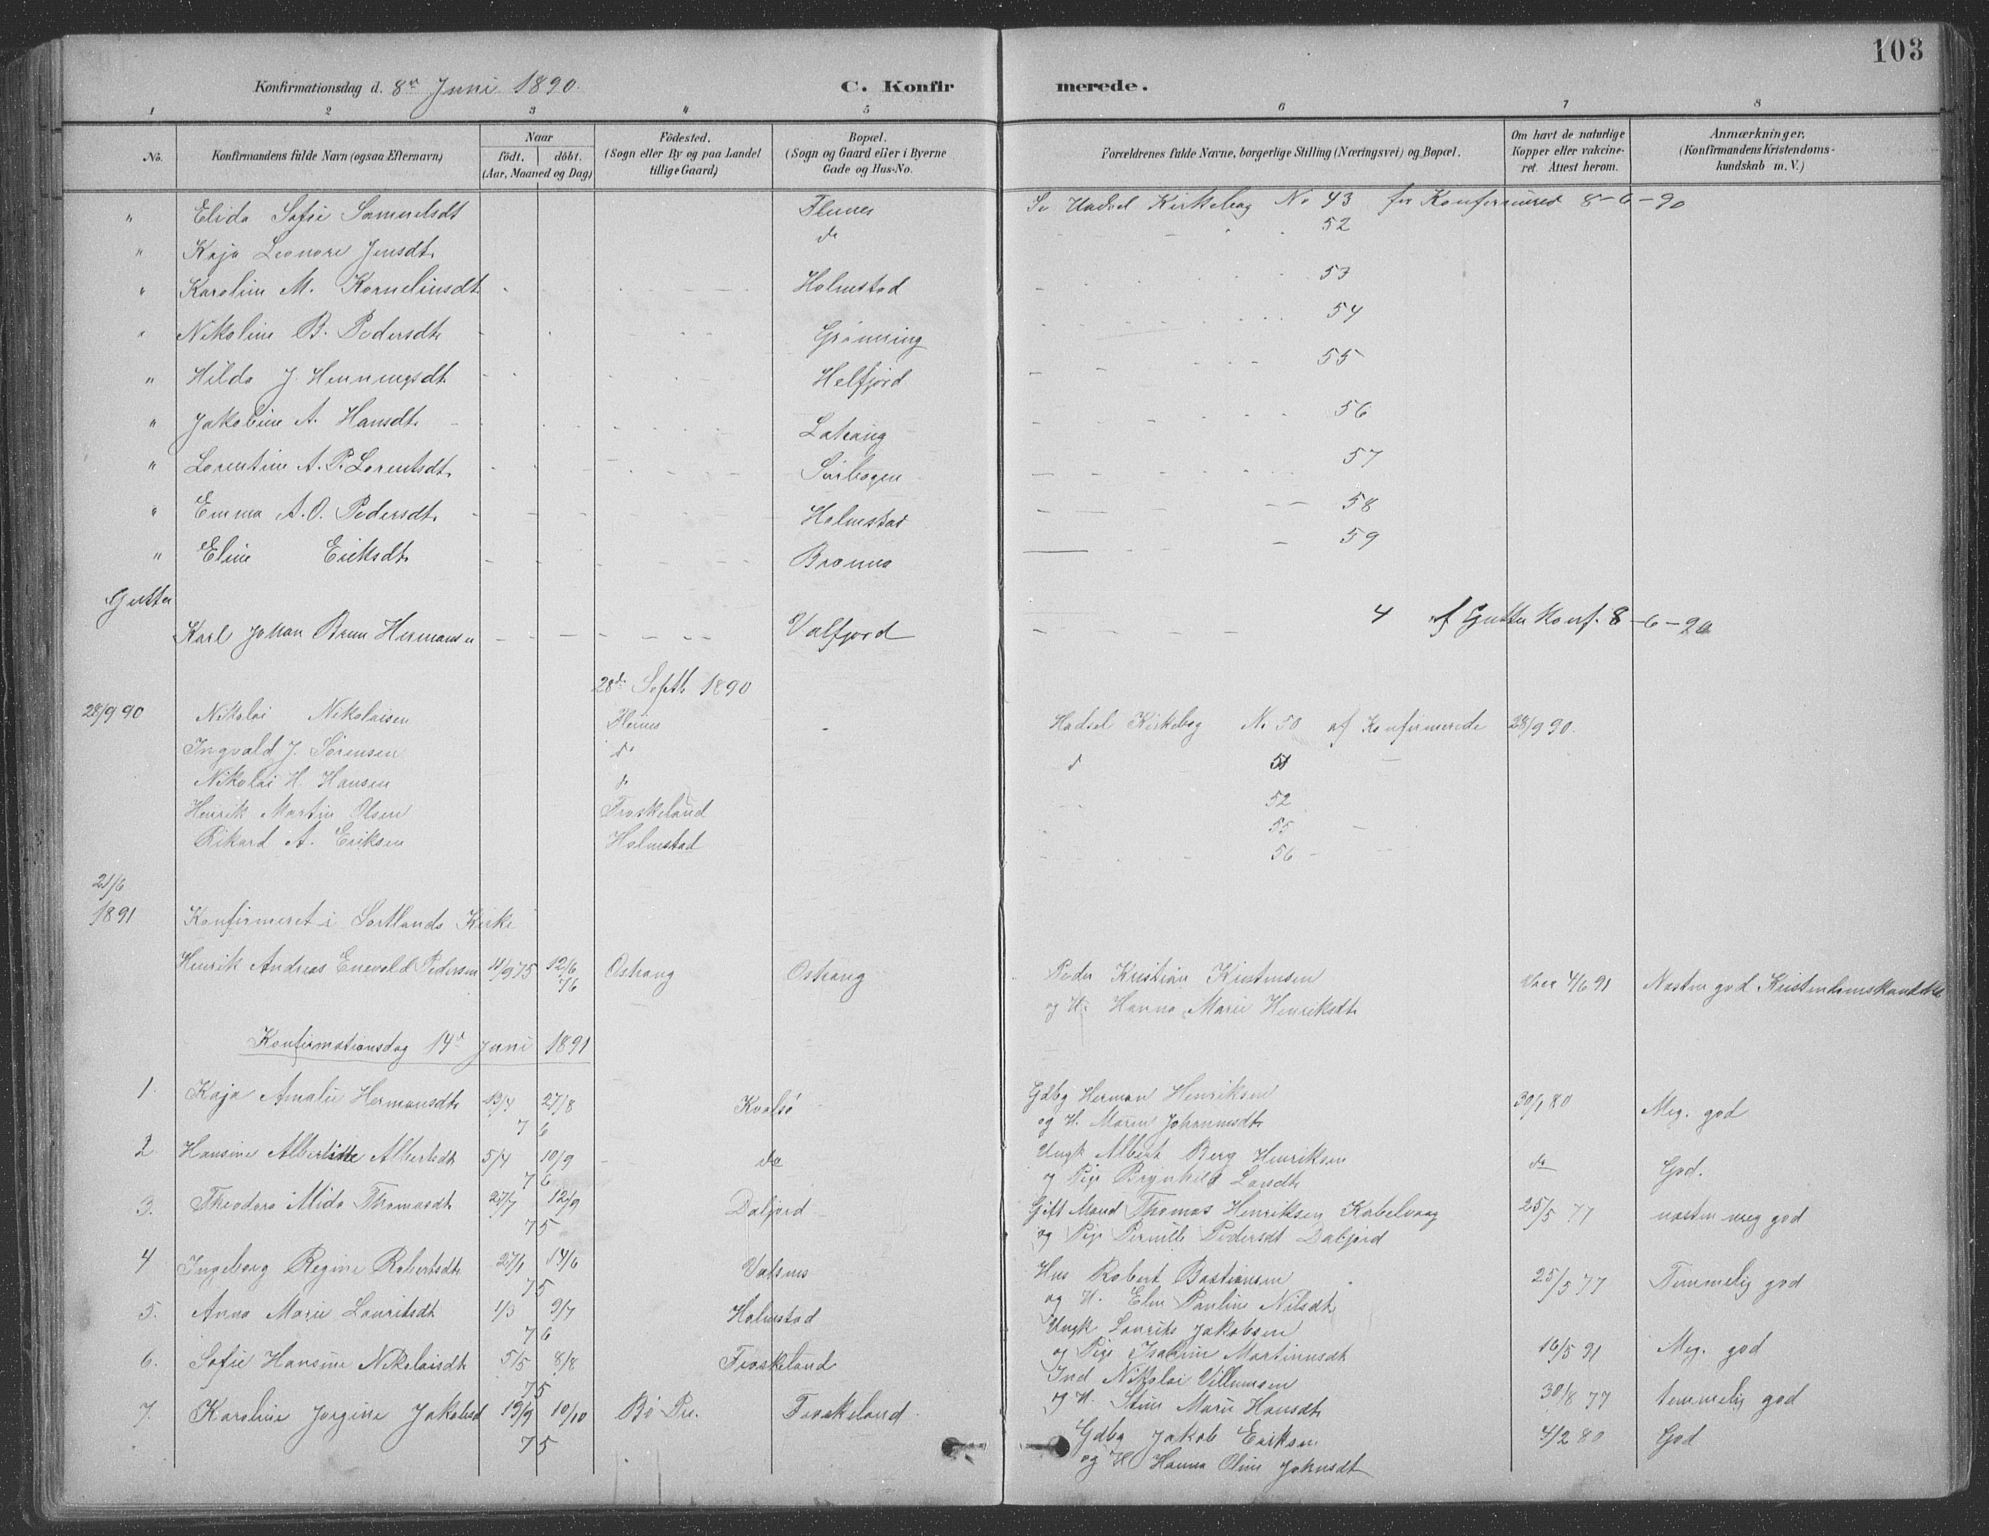 103
Konfirmationsdag d. 8de Juni 1890. C. Konfirmerede.
1 2 3 4 5 6 7 8
No. Konfirmandens fulde Navn (ogsaa Efternavn) Naar födt. döbt. (Aar, Maaned og Dag) Födested. (Sogn eller By og paa Landet tillige Gaard) Bopæl. (Sogn og Gaard eller i Byerne Gade og Hus-No. Forældrenes fulde Navne, borgerlige Stilling (Næringsvei) og Bopæl. Om havt de naturlige Kopper eller vakcineret. Attest herom. Anmærkninger. (Konfirmandens Kristendomskundskab m. V.)
" Elida Sofie Samuelsdt Flenes Se Hadsel Kirkebog No 43 for Konfirmered 8-6-90
" Kaja Leonore Jensdt. do 52
" Karoline M. Korneliusdt. Holmstad 53
" Nikoline B. Pedersdt. Grönning 54
" Hilda J. Henningsdt. Helfjord 55
" Jakobine A. Hansdt. Latrang 56
" Lorentine A. P. Lorentsdt. 57
" Emma A. O. Pedersdt. Holmstad 58
" Eline Eriksdt. 59
Gutter
Karl Johan Brun Hermansen Valfjord 4 af Gutter Konf. 8-6-90
28de Septb 1890
28/9 90 Nikolai Nikolaisen Flenes Hadsel Kirkebog No 50 af Konfirmerede 28/9 90.
Ingvald J. Sörensen do d 51
Nikolai H. Hansen do 52
Henrik Martin Olsen Froskeland 55
Rikard A. Eriksen Holmstad 56
21/6
1891 Konfirmeret i Sortlands Kirke
Henrik Andreas Enevold Pedersen 11/9 75 12/6 76 Ostrang Ostrang Peder Kristian Kristensen 4/6 91 Næsten god Kristendomskundsk
og H. Hanna Marie Henriksdt.
Konfirmationsdag 14d Juni 1891
1. Kaja Amalie Hermansdt. 13/4 27/8 76 Kvalsö Gdbg Herman Henriksen 30/1 80 Meg. god
og H. Maren Johannesdt.
2 Hansine Albertine Albertsdt 5/4 10/9 76 do Ungk Albert Berg Henriksen do God.
og Pige Brynhild Larsdt.
3. Theodora Alida Thomasdt 27/7 12/9 75 Dalfjord Gift Mand Thomas Henriksen Kabelvaag 25/5 77 næsten meg god
og Pige Pernille Pedersdt Dalfjord
4 Ingeborg Regine Robertsdt. 27/1 14/6 75 Vatsnes Hus Robert Bastiansen 25/5 77 Temmelig god
og H. Elen Pauline Nilsdt.
5. Anna Marie Lauritsdt 1/3 9/7 76 Holmstad Ungk Laurits Jakobsen 16/5 91 Meg. god
og Pige Martinusdt
6. Sofie Hansine Nikolaisdt 5/5 8/8 75 Froskeland Ind Nikolai Villumsen 30/8 77 temmelig god
og H. Stine Marie Hansdt.
7. Karoline Jorgine Jakobsd 19/9 10/10 75 Bö Pr. Froskeland Gdbg Jakob Eriksen 4/2 80 God
og H Hanna Oline Johnsdt